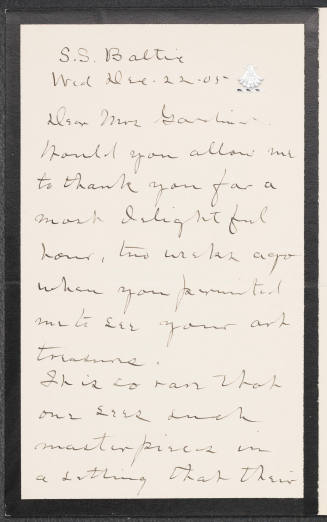 S.S. Baltic
Wed Dec. 22-05
Dear Mrs Gardner.
Would you allow me
to thank you for a
most delightful
hour, two weeks ago
when you permitted
me to see your art
treasures.
It is so rare that
one sees such
masterpieces in
a setting that their